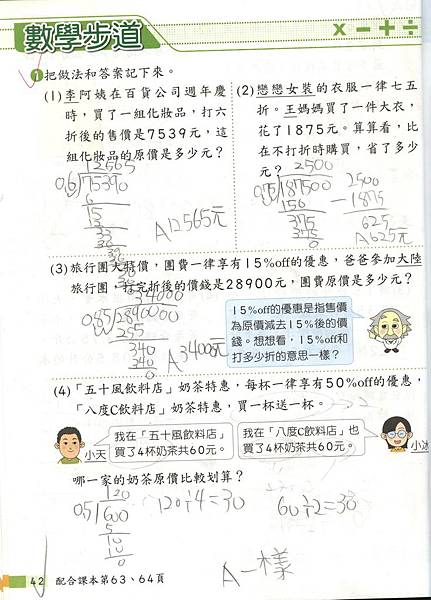 數學步道
× − + ÷
1 把做法和答案記下來。
(1) 李阿姨在百貨公司週年慶
時，買了一組化妝品，打六
折後的售價是7539元，這
組化妝品的原價是多少元？
12565
0.6/75390
6
15
13
33
30
39
36
30
30
0
A12565元
(2) 戀戀女裝的衣服一律七五
折。王媽媽買了一件大衣，
花了1875元。算算看，比
在不打折時購買，省了多少
元？
2500
0.75/187500
150
375
375
0
2500
−1875
625
A625元
(3) 旅行團大特價，團費一律享有15%off的優惠，爸爸參加大陸
旅行團，打完折後的價錢是28900元，團費原價是多少元？
34000
0.85/2890000
255
340
340
0
A34000元
15%off的優惠是指售價
為原價減去15%後的價
錢。想想看，15%off和
打多少折的意思一樣？
(4)「五十風飲料店」奶茶特惠，每杯一律享有50%off的優惠，
「八度C飲料店」奶茶特惠，買一杯送一杯。
我在「五十風飲料店」
買了4杯奶茶共60元。
小天
我在「八度C飲料店」也
買了4杯奶茶共60元。
小冰
哪一家的奶茶原價比較划算？
120
0.5/600
5
10
10
0
120÷4=30
60÷2=30
A一樣
42 配合課本第63、64頁